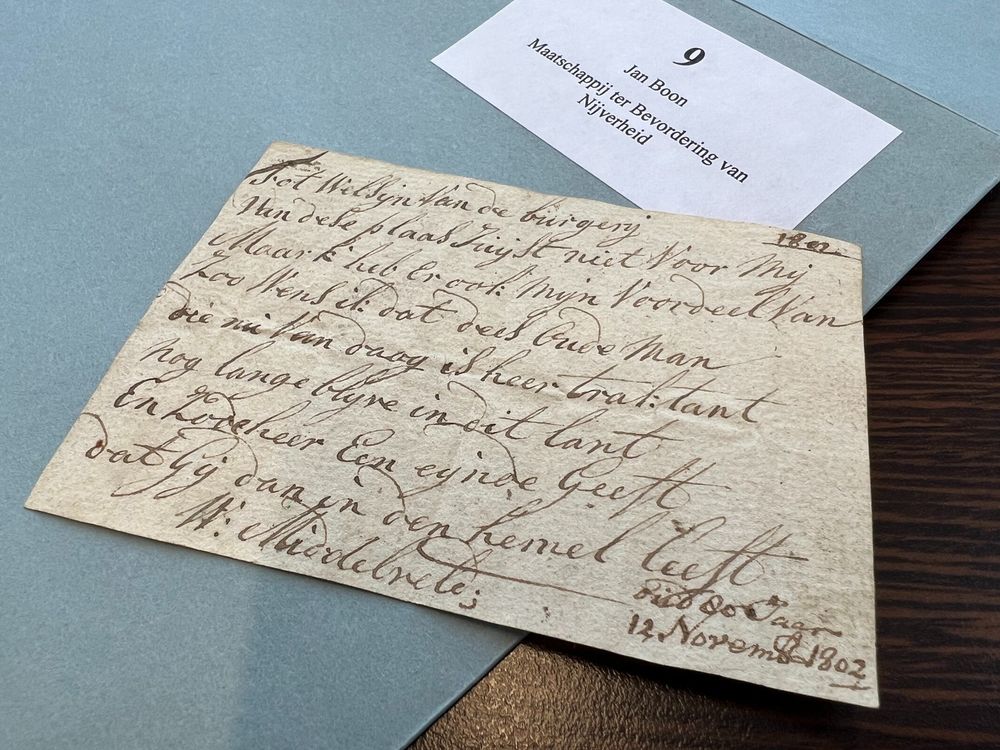 9
Jan Boon
Maatschappij ter Bevordering van
Nijverheid
1802
Tot Welsyn Van de burgerij
Van dese plaas Juyst niet Voor Mij
Maar k heb er ook Mijn Voordeel Van
Zoo Wens ik dat dees Oude Man
die nu Van daag is heer trak:tant
nog lange blyve in dit lant
En Zode heer Een eynde Geeft
dat Gij dan in den hemel leeft
W: Middelvelt;
oud 80 Jaar
12 Novemb 1802